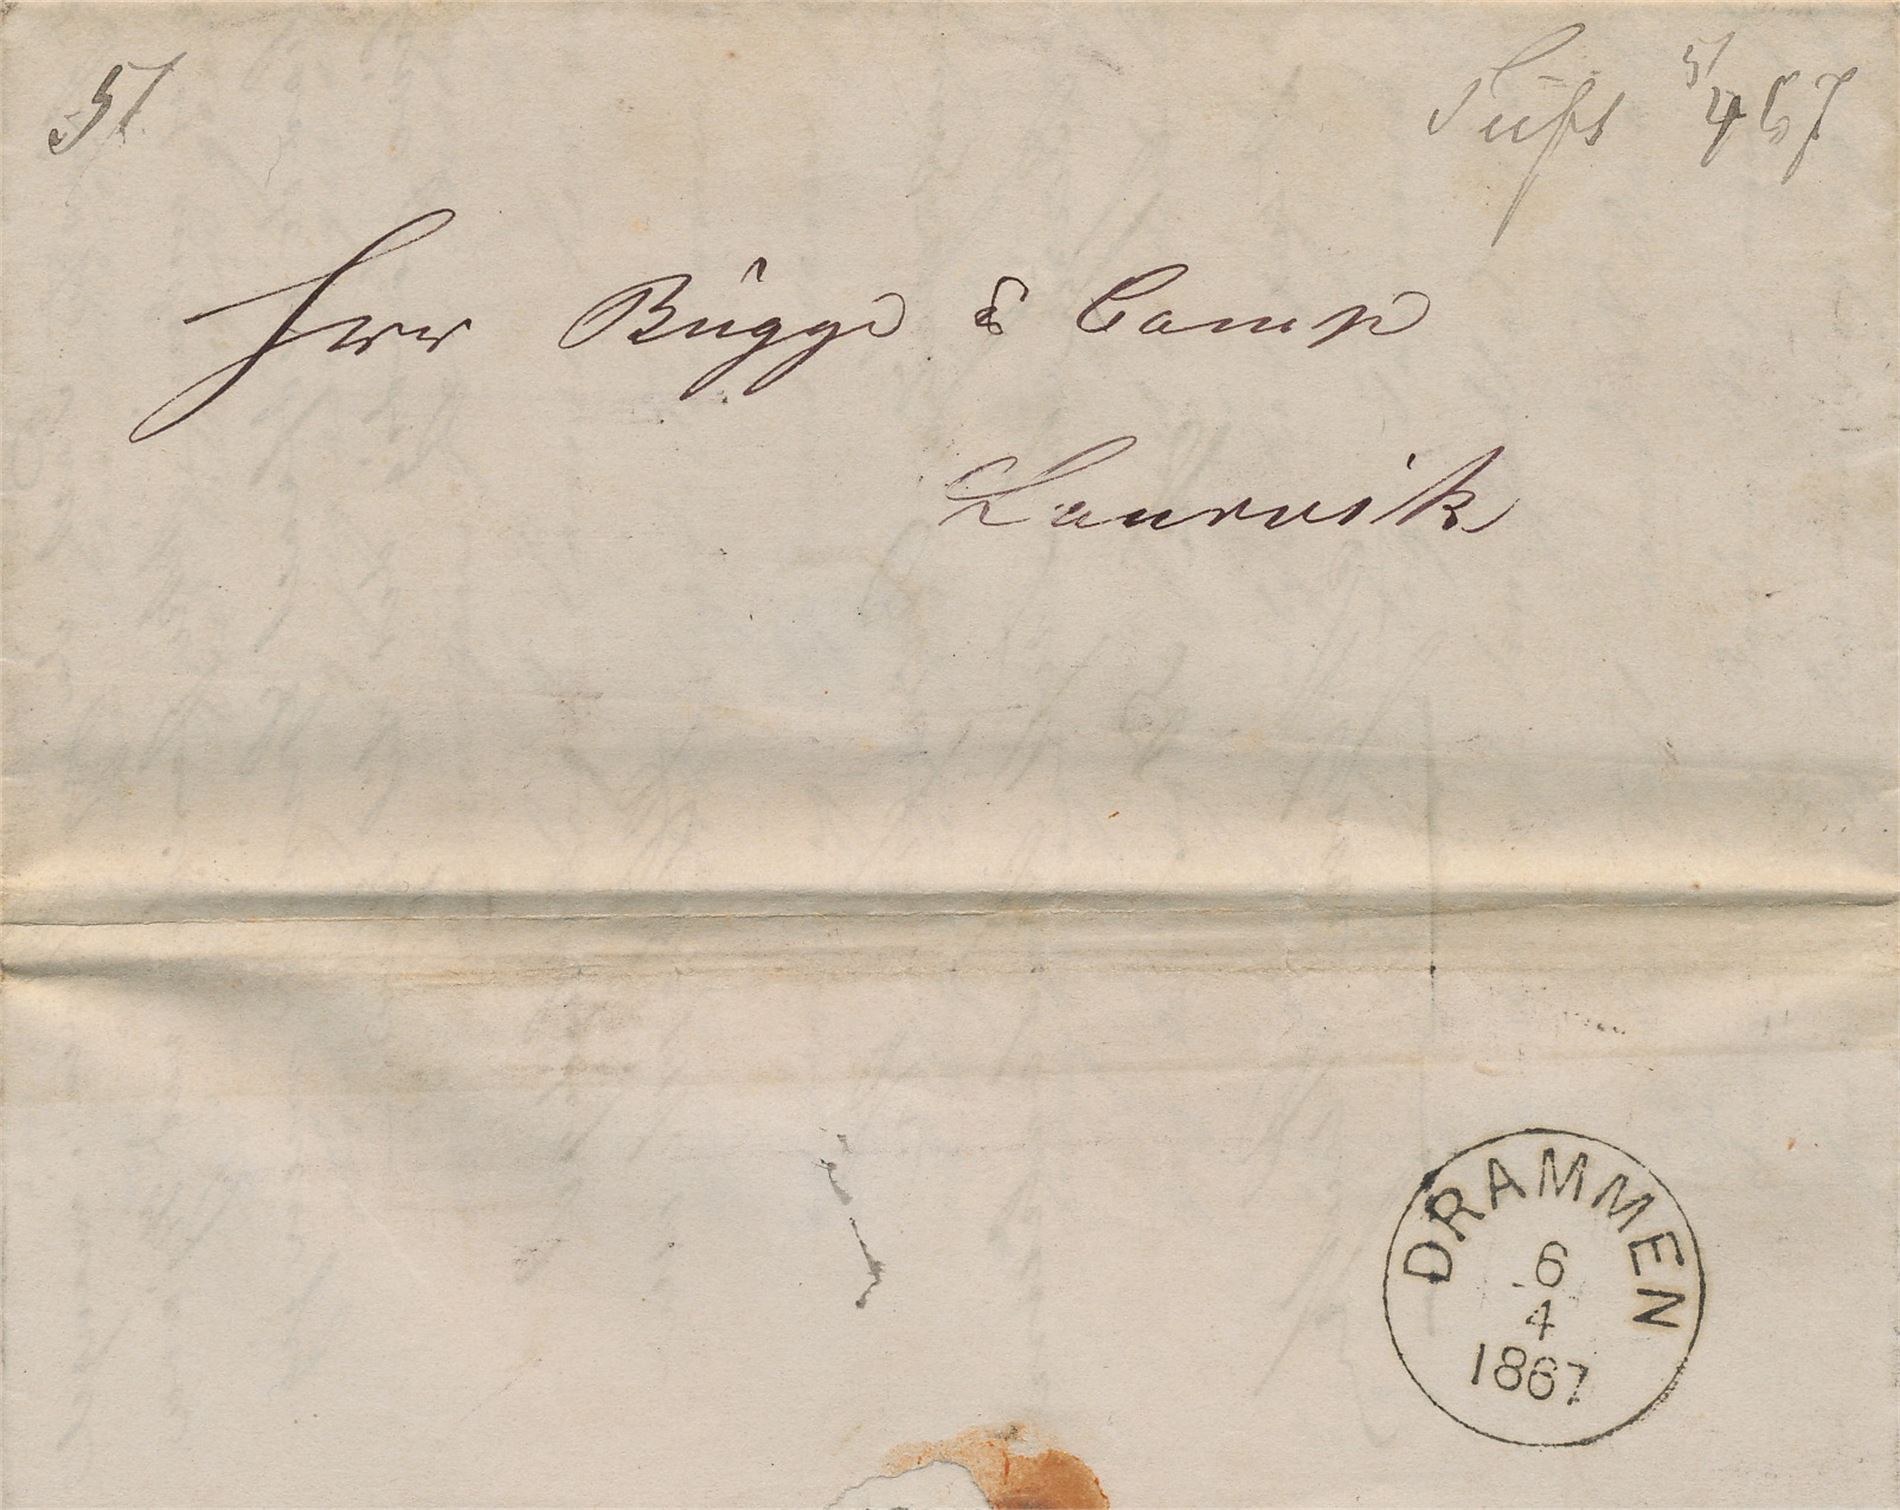 51
Tufs 5/4 67
Herr Bügge & Comp
Laurvik
DRAMMEN
6
4
1867